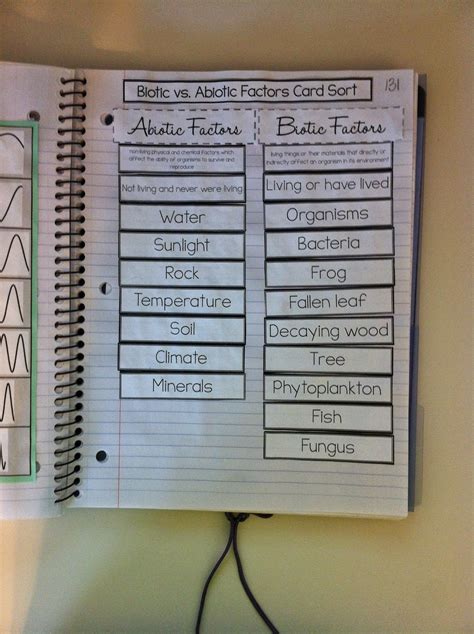 Biotic vs. Abiotic Factors Card Sort
131
Abiotic Factors
non living physical and chemical factors which
affect the ability of organisms to survive and
reproduce
Not living and never were living
Water
Sunlight
Rock
Temperature
Soil
Climate
Minerals
Biotic Factors
living things or their materials that directly or
indirectly affect an organism in its environment
Living or have lived
Organisms
Bacteria
Frog
Fallen leaf
Decaying wood
Tree
Phytoplankton
Fish
Fungus